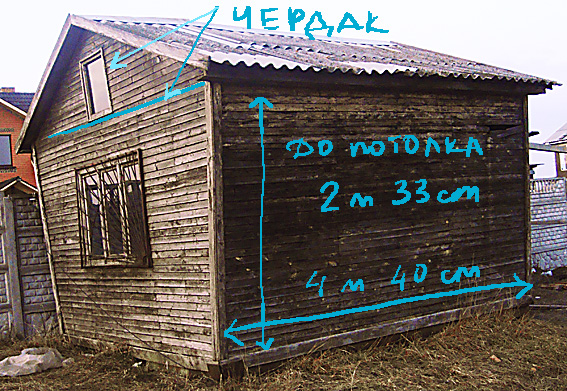 ЧЕРДАК
ДО ПОТОЛКА
2 м 33 cm
4 м 40 cm